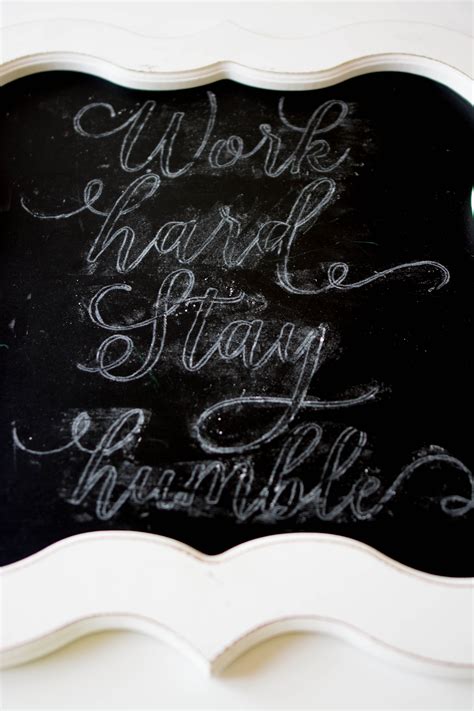 Work
hard
Stay
humble